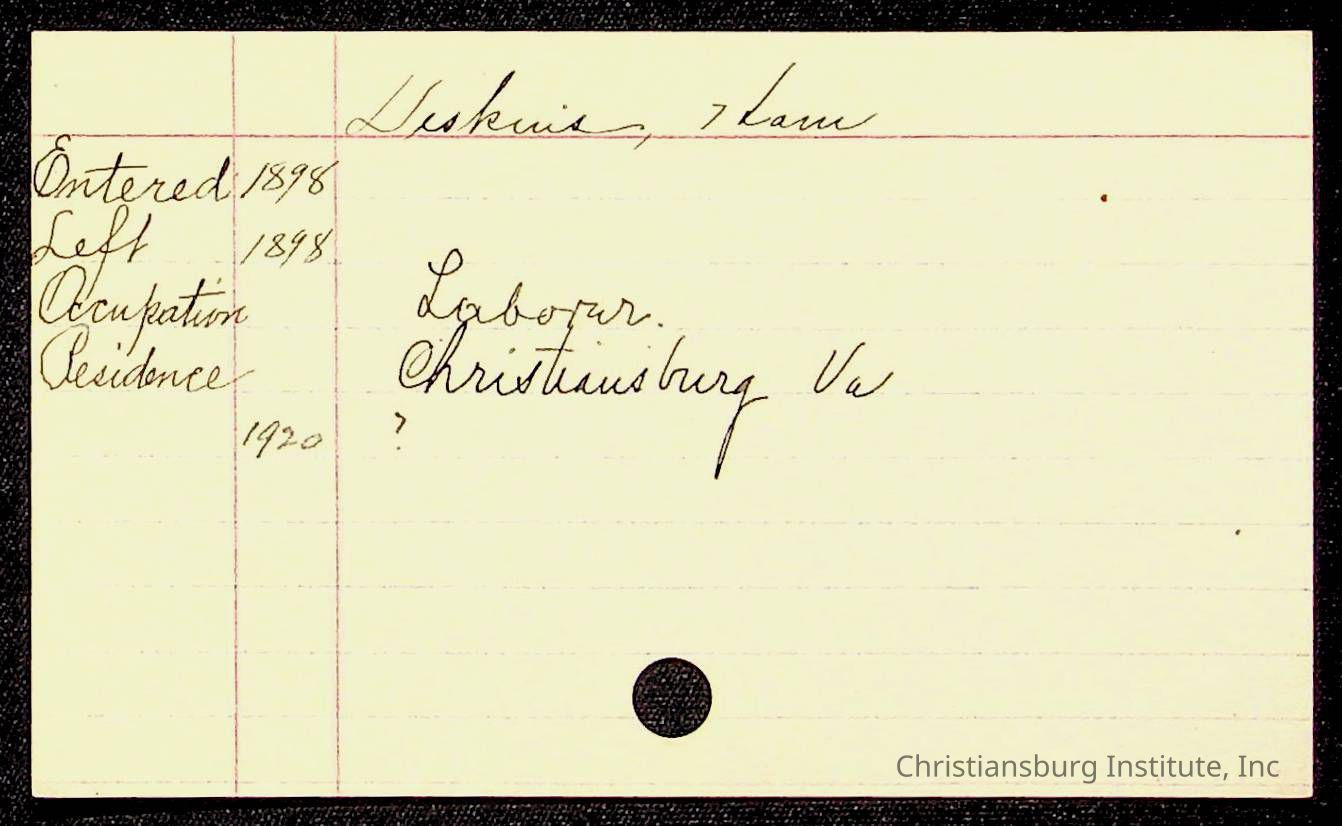 Deskins,
Entered 1898
Left 1898
Occupation Laborer.
Residence Christiansburg Va
1920 ?
Christiansburg Institute, Inc